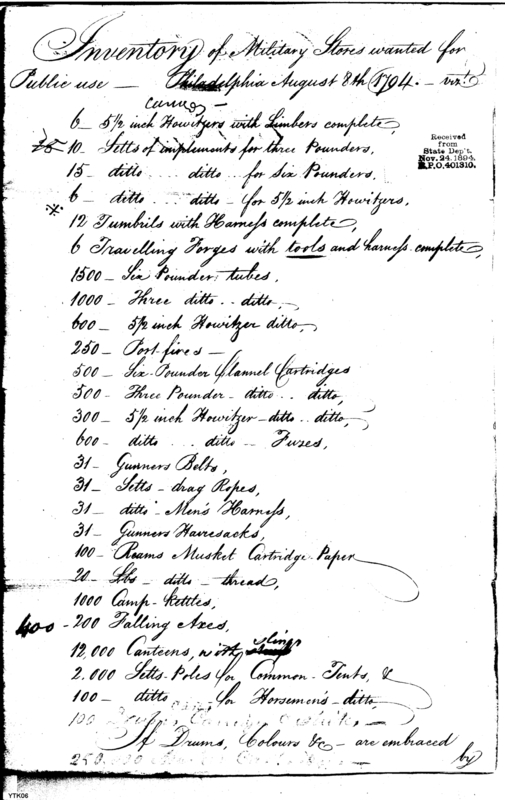 Inventory of Military Stores wanted for
Public use — Philadelphia August 8th 1794. — vizt
6 5½ inch Howitzers with Limbers complete,
Received
from
State Dep't.
Nov. 24. 1894.
R.P.O. 401310.
10 – Setts of implements for three Pounders,
15 – ditto ... ditto – for Six Pounders,
6 – ditto ... ditto – for 5½ inch Howitzers,
12 Tumbrils with Harness complete,
6 Travelling Forges with tools and harness complete,
1500 – Six Pounder tubes,
1000 – Three ditto .. ditto
600 – 5½ inch Howitzer ditto,
250 – Port fires –
500 – Six Pounder Flannel Cartridges
500 – Three Pounder – ditto .. ditto,
300 – 5½ inch Howitzer – ditto .. ditto,
600 – ditto ... ditto – Fuzes,
31 – Gunners Belts,
31 – Setts – drag Ropes,
31 – ditto – Men's Harness,
31 – Gunners Haversacks,
100 – Reams Musket Cartridge Paper
20 – lbs – ditto – thread,
1000 Camp – kettles,
400 – 200 Falling Axes,
12,000 Canteens, with slings
2.000 Setts – Poles for Common – Tents, &
100 – ditto for Horsemen's – ditto
100
If Drums, Colours &c – are embraced
by
250,000
YTK06